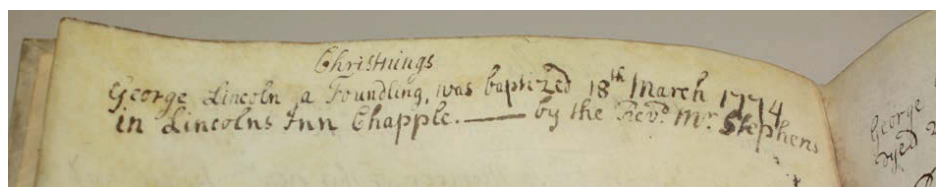 Christnings
George Lincoln a Foundling, was baptized 18th March 1774
in Lincolns Inn Chapple. —— by the Revd. Mr. Stephens
George
dyed